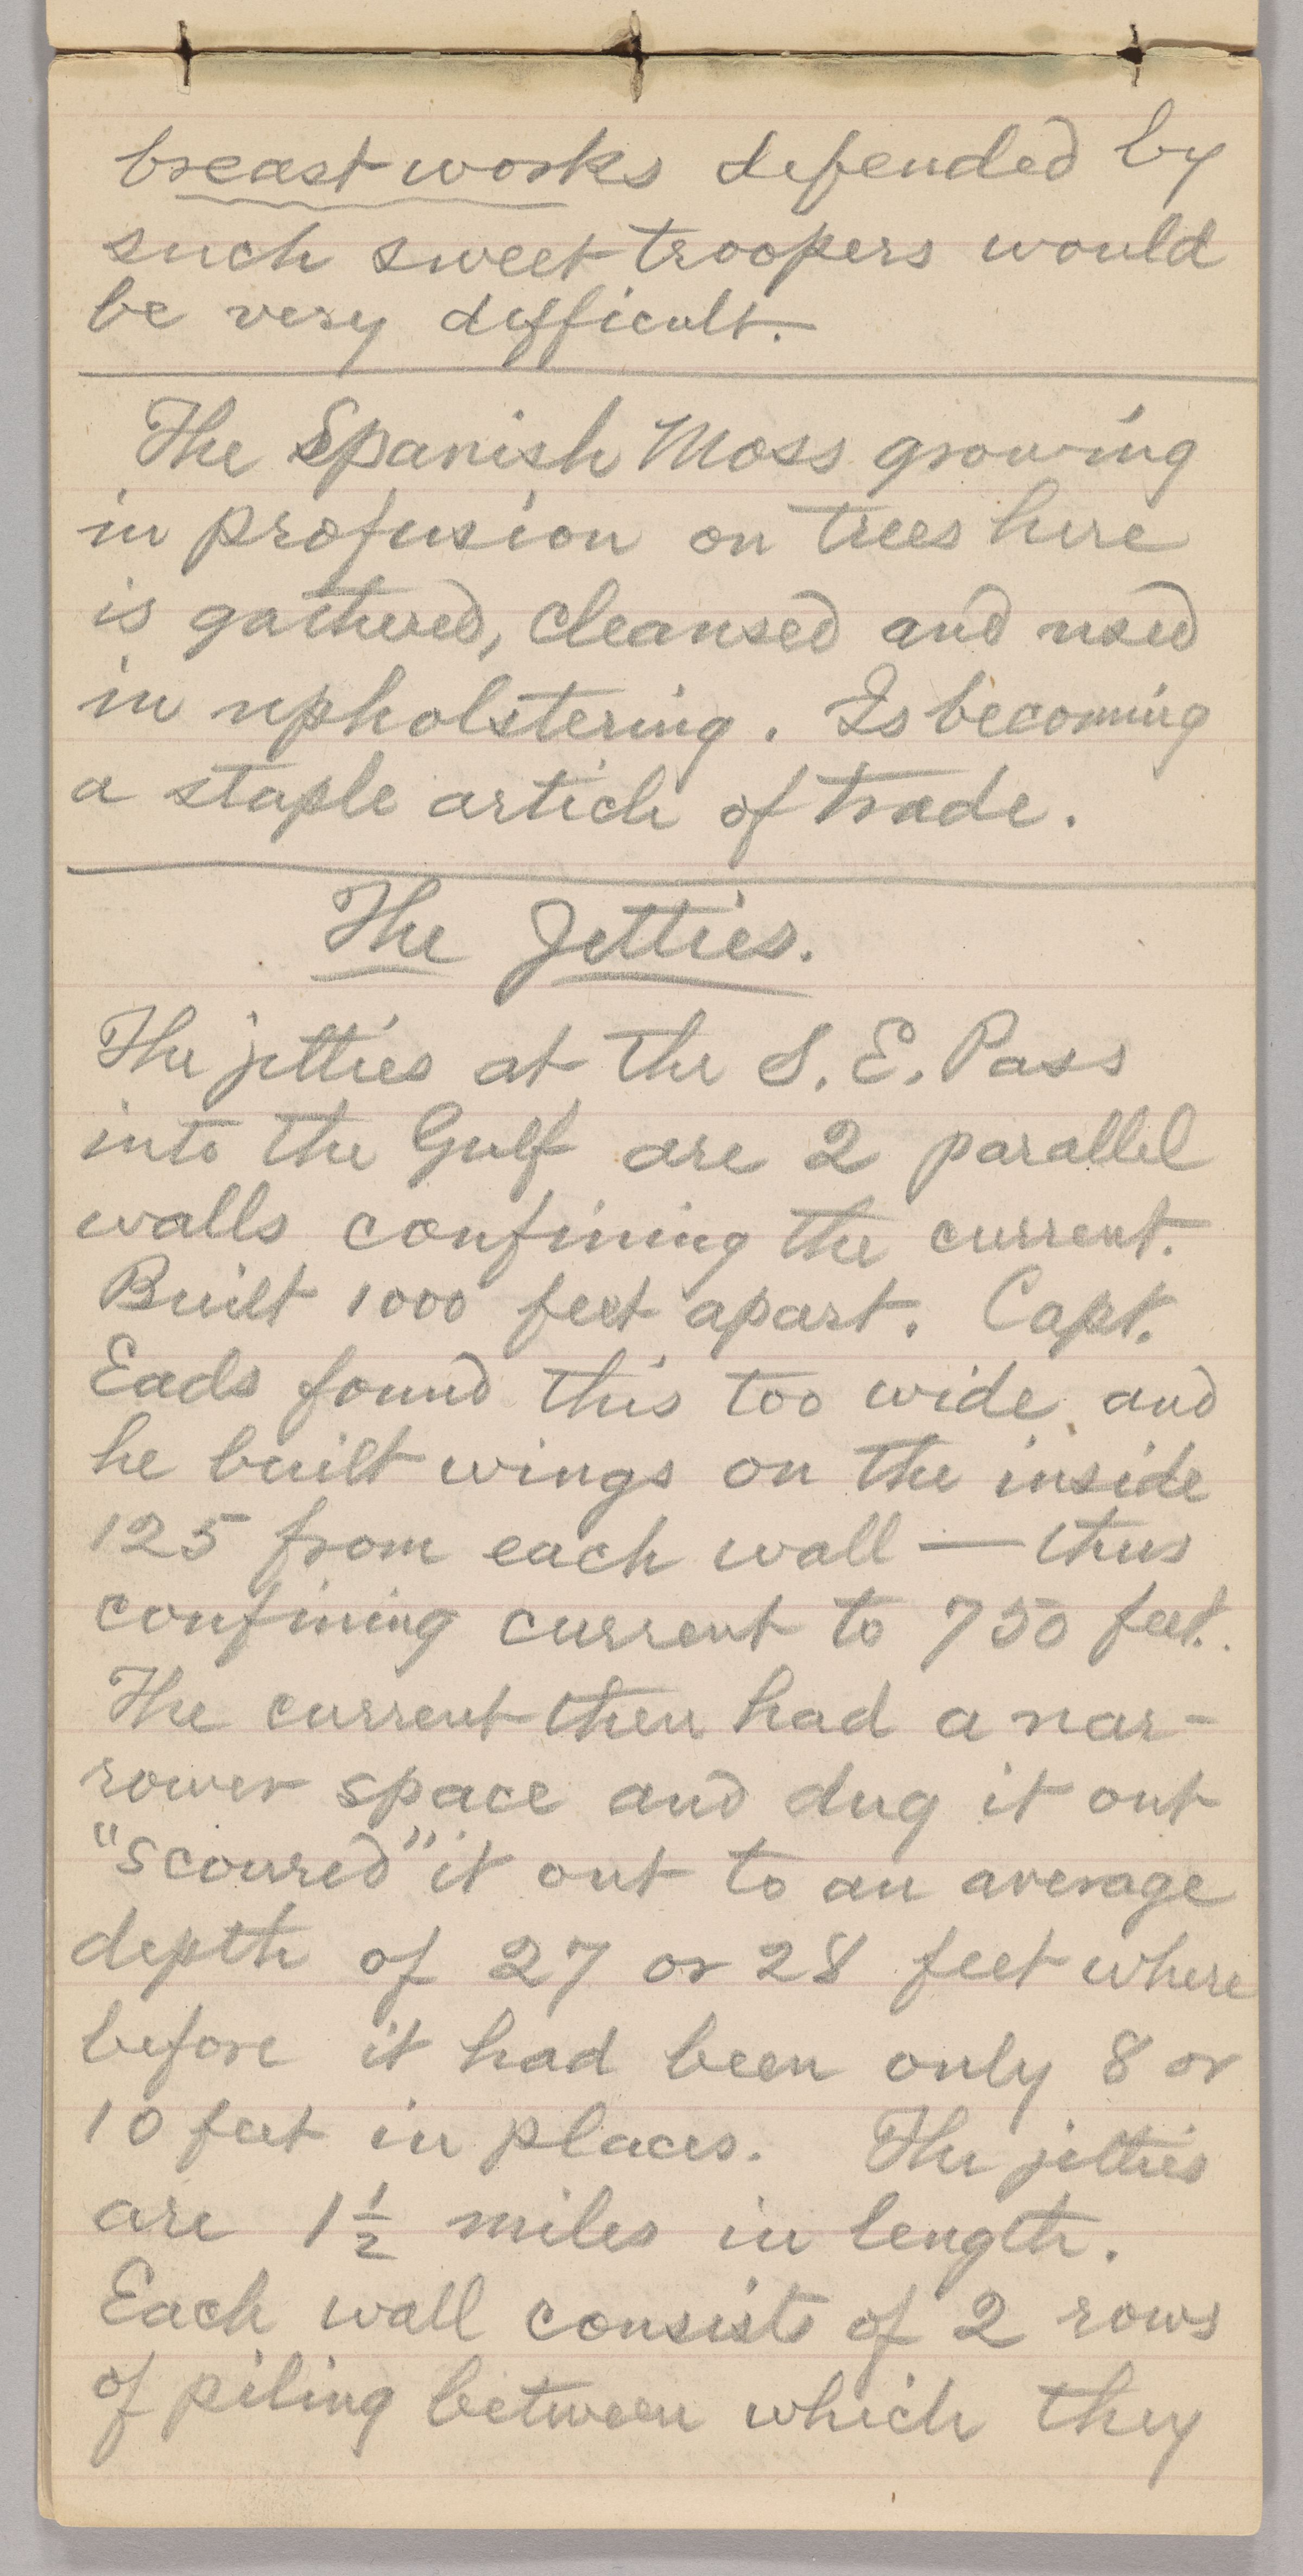 breast works defended by
such sweet troopers would
be very difficult.
The Spanish Moss growing
in profusion on trees here
is gathered, cleansed and used
in upholstering. Is becoming
a staple article of trade.
The Jetties.
The jetties at the S. E. Pass
into the Gulf are 2 parallel
walls confining the current.
Built 1000 feet apart. Capt.
Eads found this too wide and
he built wings on the inside
125 from each wall — thus
confining current to 750 feet.
The current then had a nar-
rower space and dug it out
"scoured" it out to an average
depth of 27 or 28 feet where
before it had been only 8 or
10 feet in places. The jetties
are 1 1/2 miles in length.
Each wall consists of 2 rows
of piling between which they